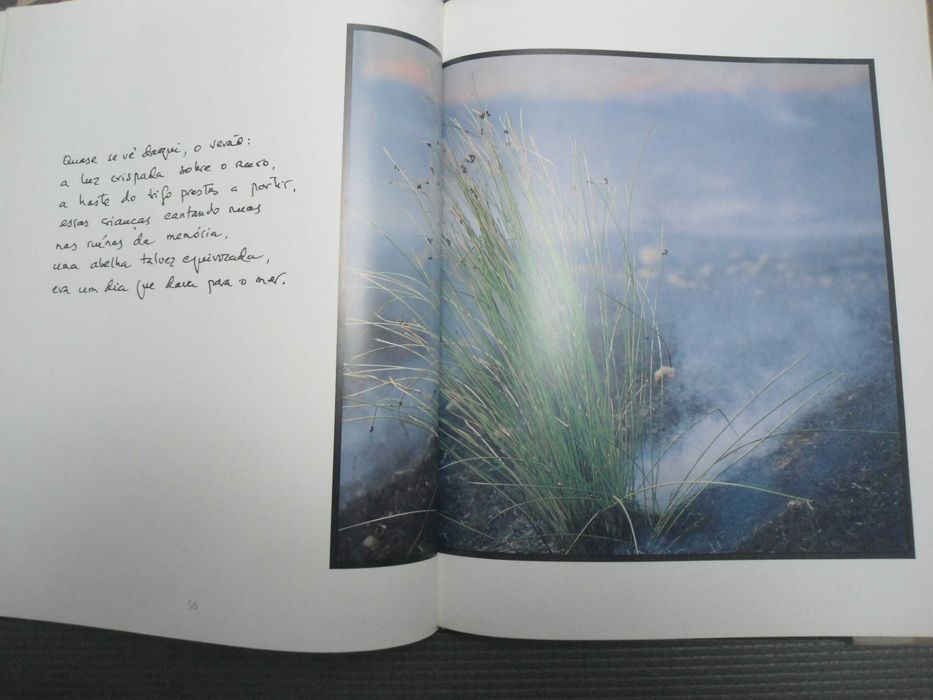 Quase se vê daqui, o verão:
a luz crispada sobre o muro,
a haste do trigo prestes a partir,
essas crianças cantando nuas
nas ruínas da memória,
uma abelha talvez equivocada,
era um dia que dava para o mar.
56